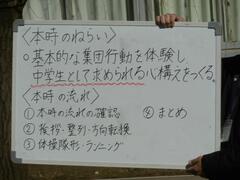 〈本時のねらい〉
○基本的な集団行動を体験し
中学生として求められる心構えをつくる。
〈本時の流れ〉
①本時の流れの確認
②挨拶・整列・方向転換
③体操隊形・ランニング
④まとめ